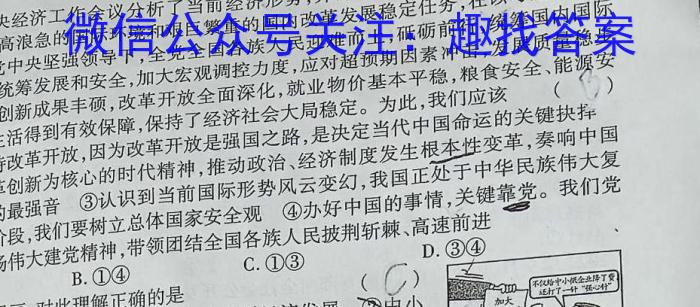 央经济工作会议分析了当前经济形势
微信公众号关注：趣找答案
党中央坚强领导下，全党全国各族人民迎难而上，砥砺前
统筹发展和安全，加大宏观调控力度，应对超预期因素冲击，发展质量稳步
创新成果丰硕，改革开放全面深化，就业物价基本平稳，粮食安全、能源安
生活得到有效保障，保持了经济社会大局稳定。为此，我们应该 （ B ）
持改革开放，因为改革开放是强国之路，是决定当代中国命运的关键抉择
革创新为核心的时代精神，推动政治、经济制度发生根本性变革，奏响中国
的最强音 ③认识到当前国际形势风云变幻，我国正处于中华民族伟大复
阶段，我们要树立总体国家安全观 ④办好中国的事情，关键靠党。我们党
扬伟大建党精神，带领团结全国各族人民披荆斩棘、高速前进
B. ①④ C. ①③ D. ③④
对此理解正确的是 （ C ）
不仅给中小微企业降了费
还打了一针“强心针”
加大
②中小